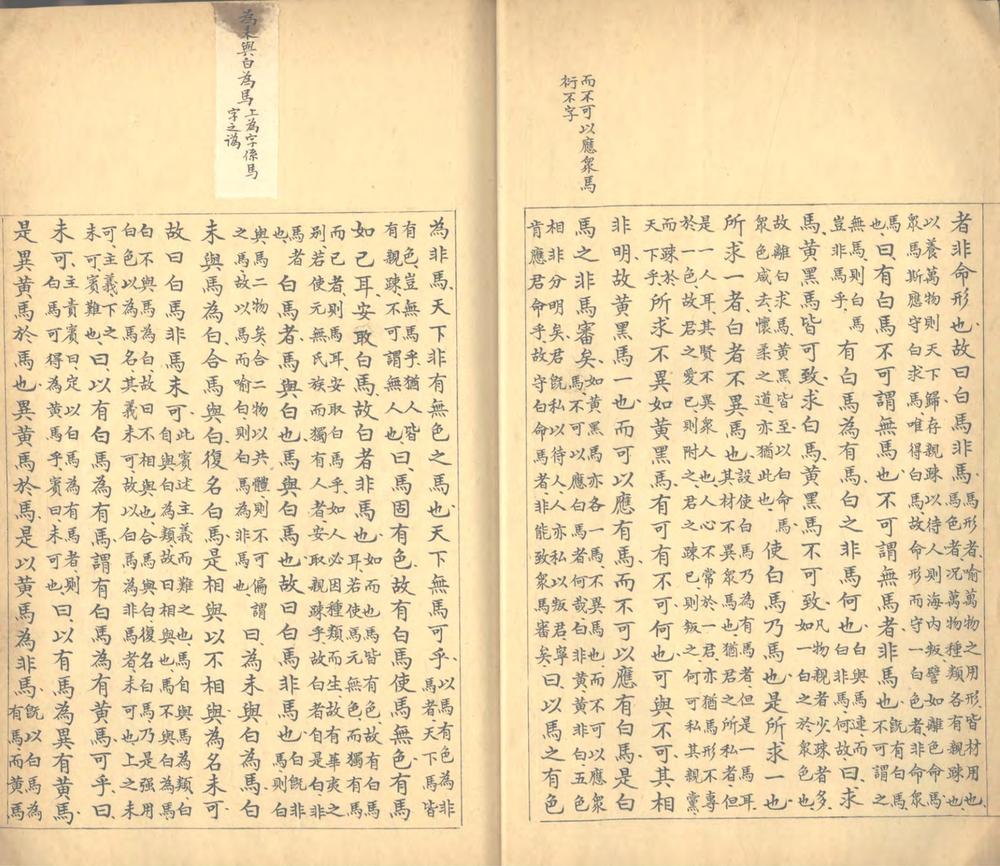 而不可以應眾馬
衍不字
者非命形也故曰白馬非馬馬形者喻萬物之用形皆材用也馬色者況萬物種類各有親疎也
以養萬物則天下歸存親疎以待人則海內叛譬如離色命馬眾馬斯應守白求馬唯得白馬故命形而守一白色者非命眾
馬也曰有白馬不可謂無馬也不可謂無馬者非馬也既有白馬不可謂之
無馬則白馬豈非馬乎有白馬為有馬白之非馬何也白與馬連而白非馬何故曰求
馬黃黑馬皆可致求白馬黃黑馬不可致凡物親者少疎者多如一白之於眾色也
故離白求馬黃黑皆至以白命馬眾色咸去懷柔之道亦猶此也使白馬乃馬也是所求一也
所求一者白者不異馬也設使白馬乃為有馬者但是一馬耳其材不異眾馬也猶君之所私者但
是一人耳其賢不異眾人也人心不常於一君亦猶馬形不專於一色故君之愛己則附之君之疎己則叛之何可私其親黨
而疎於天下乎所求不異如黃黑馬有可有不可何也可與不可其相
非明故黃黑馬一也而可以應有馬而不可以應有白馬是白
馬之非馬審矣如黃黑馬亦各一馬不異馬也而不可以應眾馬不可以應白馬者何哉白非黃黃非白五色
相非分明矣君既私以待人人亦私以叛君寧肯應君命乎故守白命馬者非能致眾馬審矣曰以馬之有色
為未與白為馬上為字係馬字之譌
為非馬天下非有無色之馬也天下無馬可乎以馬有色為非馬者天下馬皆
有色豈無馬乎猶人皆有親疎不可謂無人也曰馬固有色故有白馬使馬無色有馬
如已耳安取白馬故白者非馬也如而也馬皆有色故有白馬耳若使馬元無色而獨有馬
而已者則馬耳安取白馬乎如人必因種類而生故有華夷之別若使元無氏族而獨有人者安取親疎乎故白者自是白非
馬者也白馬者馬與白也馬與白馬也故曰白馬非馬也白既非馬則白
與馬二物矣合二物以共體則不可偏謂之馬故以馬而喻白則白馬為非馬也曰為未與白為馬白
未與馬為白合馬與白復名白馬是相與以不相與為名未可
故曰白馬非馬未可此賓述主義而難之也馬自與馬為類白自與白為類故曰相與也馬不與白為馬
白不與馬為白故曰不相與也合馬與白復名白馬乃是強用白色以為馬名其義未可故以白馬為非馬者未可也上之未
可主義下之未可賓難也曰以有白馬為有馬謂有白馬為有黃馬可乎曰
未可主責賓曰定以白馬為有馬者則白馬可得為黃馬乎賓曰未可也曰以有馬為異有黃馬
是異黃馬於馬也異黃馬於馬是以黃馬為非馬既以白馬為有馬而黃馬